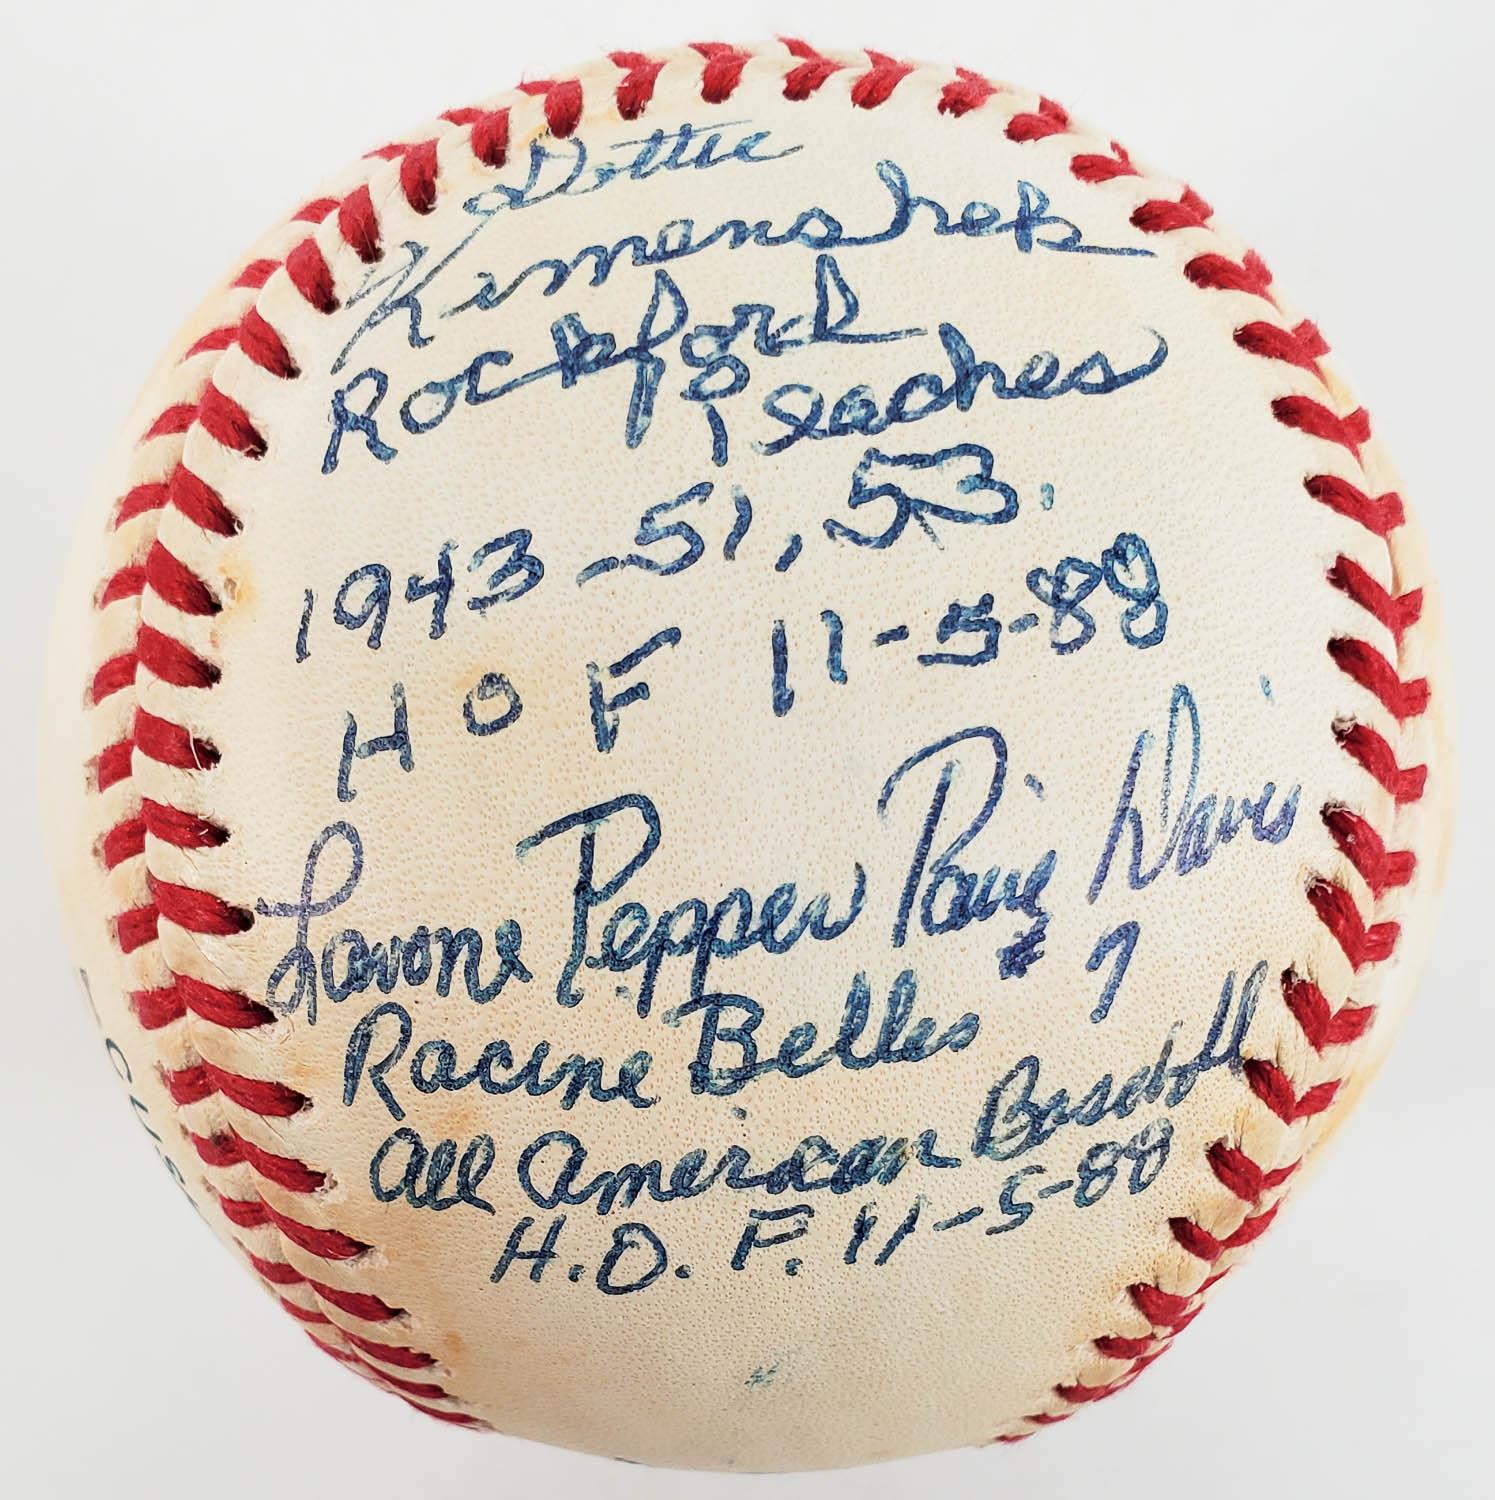 Dottie
Kamenshek
Rockford
Peaches
1943-51, 53.
H O F 11-5-88
Lavone Pepper Paire Davis
#7
Racine Belles
All American Baseball
H.O.F. 11-5-88